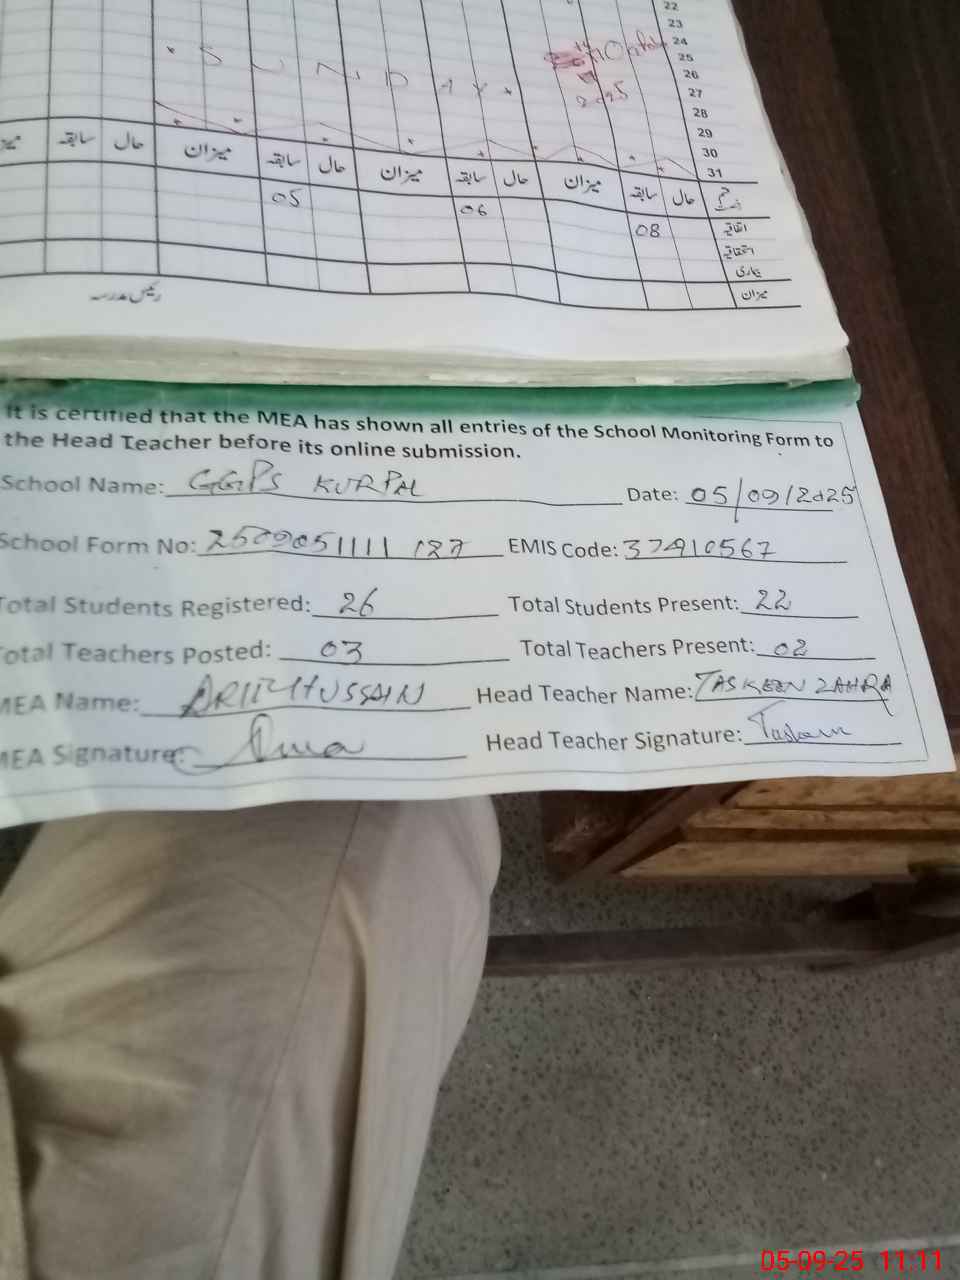 22
23
24
25
26
27
28
29
30
31
S U N D A Y
2025
حال سابقہ میزان حال سابقہ میزان حال سابقہ میزان حال سابقہ
05 06 08
میزان
رئیس مدرسہ
It is certified that the MEA has shown all entries of the School Monitoring Form to
the Head Teacher before its online submission.
School Name: GGPS KURPAL Date: 05/09/2025
School Form No: EMIS Code: 37410567
Total Students Registered: 26 Total Students Present: 22
Total Teachers Posted: 03 Total Teachers Present: 02
MEA Name: HUSSAIN Head Teacher Name: TASKEEN ZAHRA
MEA Signature: Head Teacher Signature: Taskeen
05-09-25 11:11